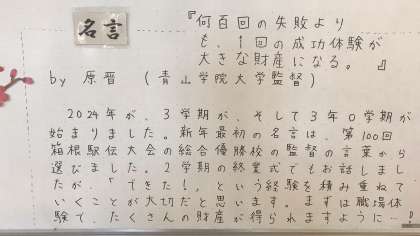 名言
『何百回の失敗より
も、1回の成功体験が
大きな財産になる。』
by 原晋 (青山学院大学監督)
2024年が、3学期が、そして3年0学期が
始まりました。新年最初の名言は、第100回
箱根駅伝大会の総合優勝校の監督の言葉から
選びました。2学期の終業式でもお話しまし
たが、「できた!」という経験を積み重ねて
いくことが大切だと思います。まずは職場体
験で、たくさんの財産が得られますように…!